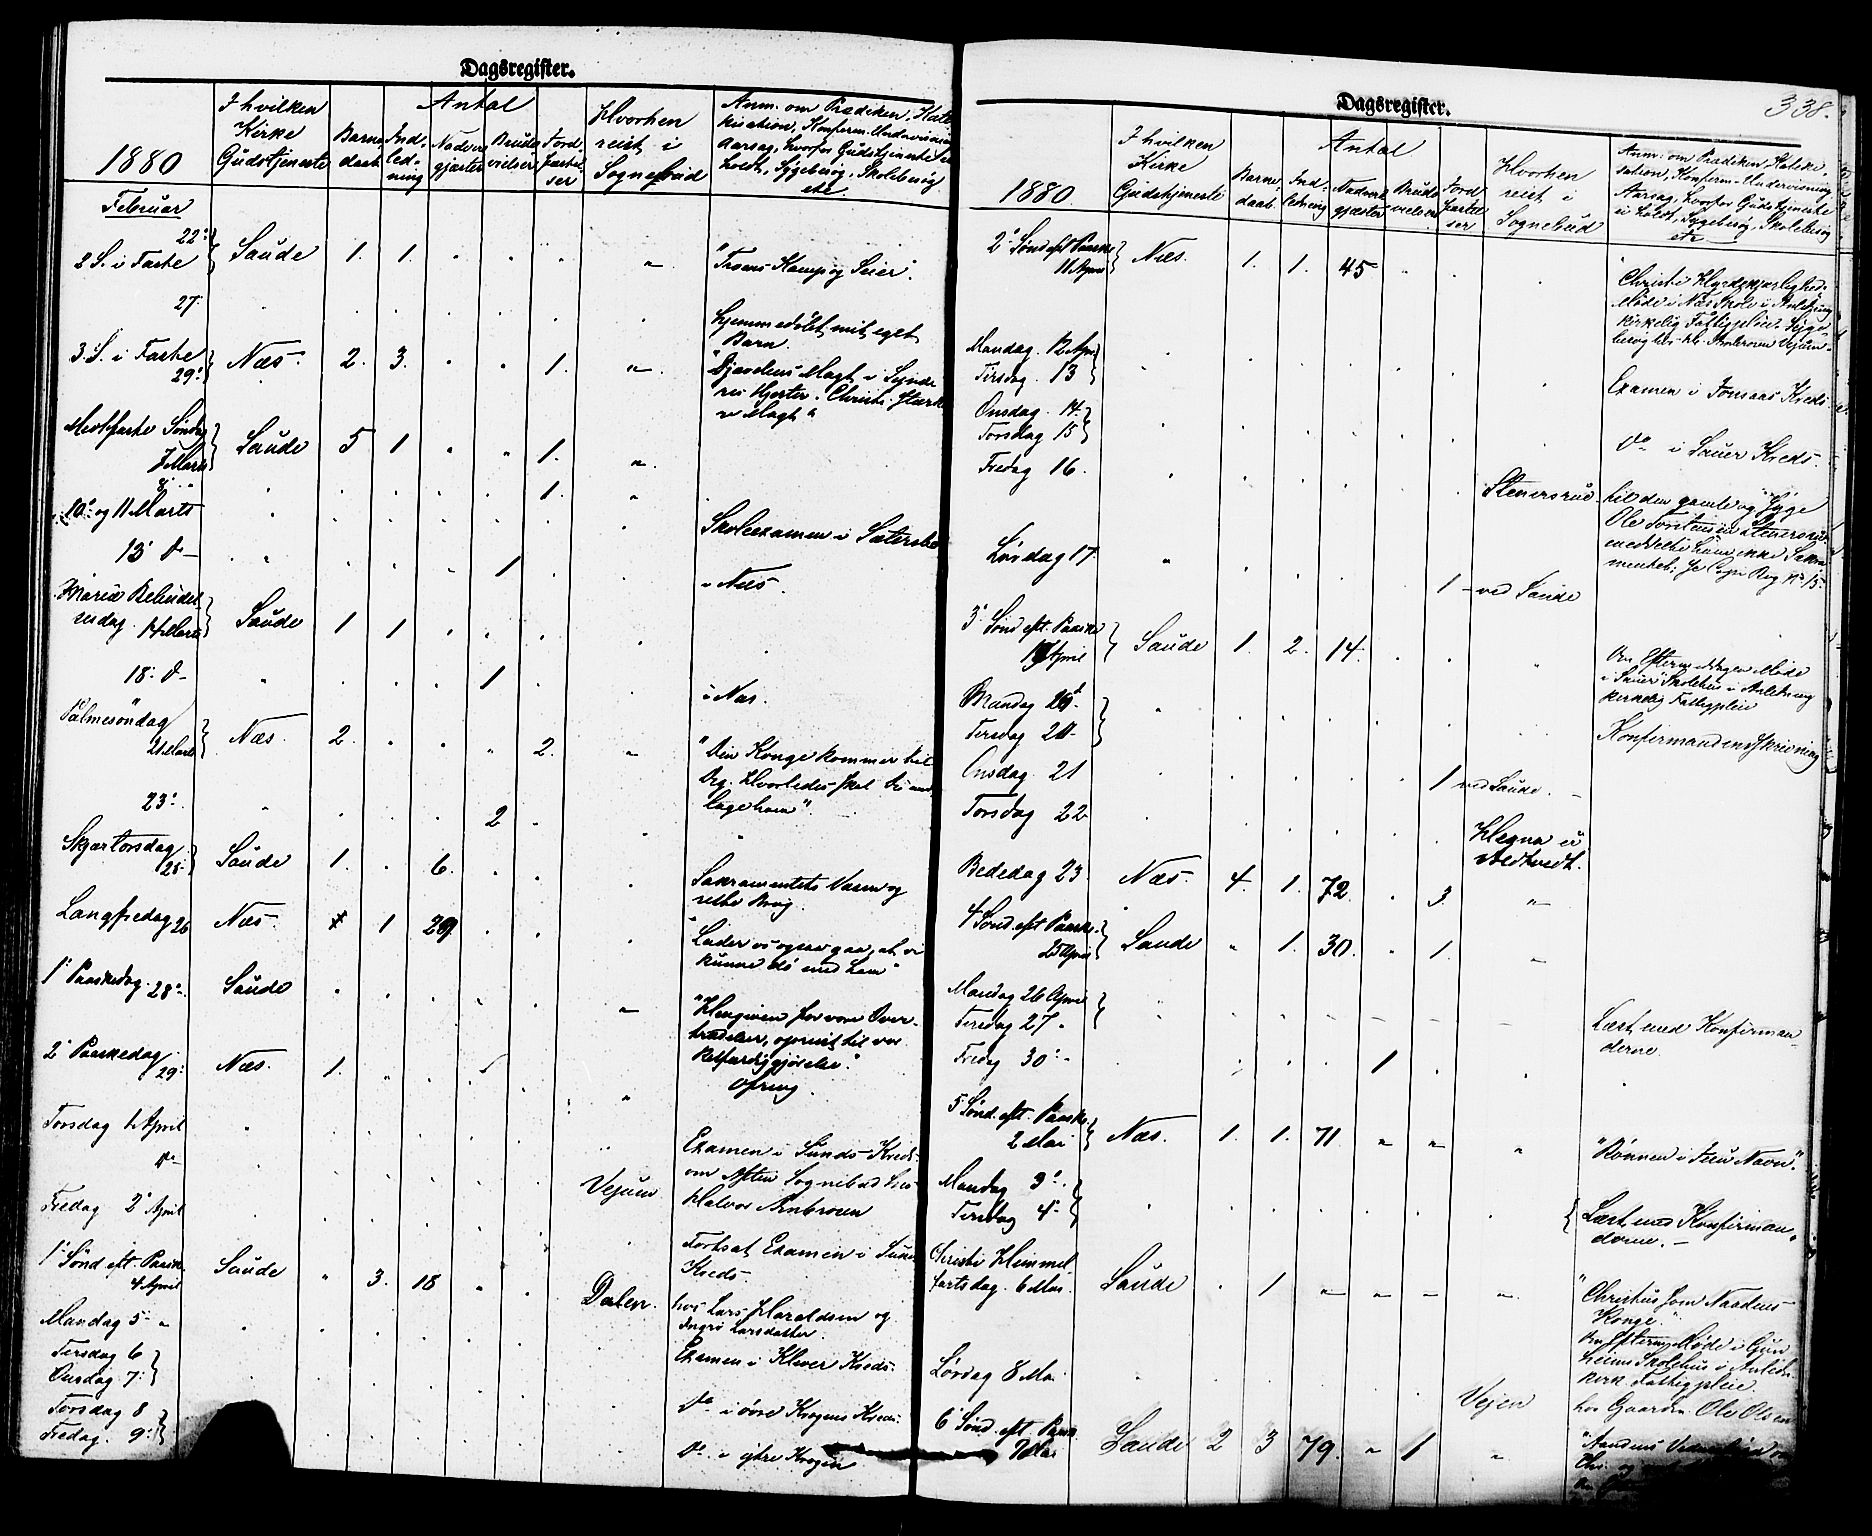 Dagsregister.
1880
I hvilken Kirke Gudstjeneste
Antal
Barne daab
Ind-led-ning
Nadver gjæster
Brude vielser
Jord-fæstel-ser
Hvorhen reist i Sognebud
Anm. om Prædiken, Kate
kisation, Konfirm. Undervisning
Aarsag, hvorfor Gudstjeneste ei
holdt, Sygebesøg, Skolebesøg
etc.
Februar
22.
2 S. i Faste Saude 1. 1. " " " " "Troens Kamp og Seier".
27. Hjemmedøbt mit eget
Barn.
3. S. i Faste
29. Næs. 2. 3. 1. " "Djævelens Magt i Synde
res Hjerter. Christi Stærke
re Magt"
Midtfaste Søndag
7 Marts Saude 5 1 " " 1. "
8. 1. "
10. og 11 Marts Skoleexamen i
13. do 1 i Næs.
Mariæ Bebudel
sesdag 14 Marts Saude 1 1
18. do 1 i Næs.
Palmesöndag
21 Marts Næs. 2. 2. " "Din Konge kommer til
Dig. Hvorledes skal Du mod
tage ham".
23. 2
Skjærtorsdag
25. Saude 1. 6. Sakramentets Væsen og
rette Brug.
Langfredag 26 Næs. 1 29. "Lader os ogsaa gaa, at vi
kunne dö med ham"
1. Paaskedag. 28. Saude " "Hengiven for vore Over-
trædelser, opreist til vor
Retfærdiggjörelse."
2. Paaskedag
29. Næs. 1. " Ofring
Torsdag 1 April Examen i Sunds Kreds.
do Vejum om Aften Sognebud hos
Halvor
Fredag 2. April Fortsat Examen i Sunds
Kreds.
1. Sönd. eft. Paaske
4 April Saude " 3. 18 " Dalen. hos Lars Haraldsen og
Ingri Larsdatter
Mandag 5 "
Tirsdag 6
Onsdag 7. Examen i Klever Kreds.
Torsdag 8
Fredag. 9. do i övre Krogens Kreds.
do i ytre Krogen
Dagsregister.
338.
1880.
I hvilken Kirke Gudstjeneste
Antal
Barne daab
Ind ledning
Nadver gjæster
Brude vielser
Jord fæstel ser
Hvorhen reist i Sognebud
Anm. om Prædiken, Kateke-
sation, Konfirm. Undervisning
Aarsag, hvorfor Gudstjeneste
ei holdt, Sygebesøg, Skolebesøg
etc
2. Sönd eft Paaske
11 April Næs. 1. 1. 45 Christi Hyrdekjærlighed.
Möde i Næs Skole i Anledning
kirkelig Fattigpleie. Syge-
besøg hos
Mandag. 12 Apr
Tirsdag. 13 Examen i Kreds
Onsdag. 14.
Torsdag 15 do i Sauer Kreds.
Fredag 16. Stenersrud til den gamle og syge
Ole Torstensen Stenersrud.
meddelte ham ikke Sakra
mentet; se Copi Bog No 15.
Lørdag 17. 1 ved Saude
3. Sönd eft. Paaske
April Saude 1. 2. 14. Om Eftermiddagen Möde
i Sauer Skolehus i Anledning
kirkelig Fattigpleie
Mandag
Tirsdag 20. Konfirmandindskrivning
Onsdag. 21 1 ved Saude.
Torsdag 22 Hegna
Bededag 23. Næs. 4. 1. 72. 3. "
4 Sönd. eft Paaske.
25 April Saude " 1. 30. 1. "
Mandag 26 April
Tirsdag 27. Læst med Konfirman-
derne.
Fredag 30. 1
5 Sönd. eft. Paaske
2 Mai Næs. 1. 1. 71 " " " "Bønnen i Jesu Navn".
Mandag 3.
Tirsdag 4. Læst med Konfirman-
derne. —
Christi Himmel-
fartsdag. 6 Mai. Saude 1 "Christus som Naadens
Konge."
Om Efterm Möde i
Skolehus i Anledn.
kirk. Fattigpleie.
Lørdag 8 Mai Vejen hos Gaardm. Ole Olsen
6 Sönd. eft. Paask.
Mai Saude 2 3 79. " 1 " "Aandens